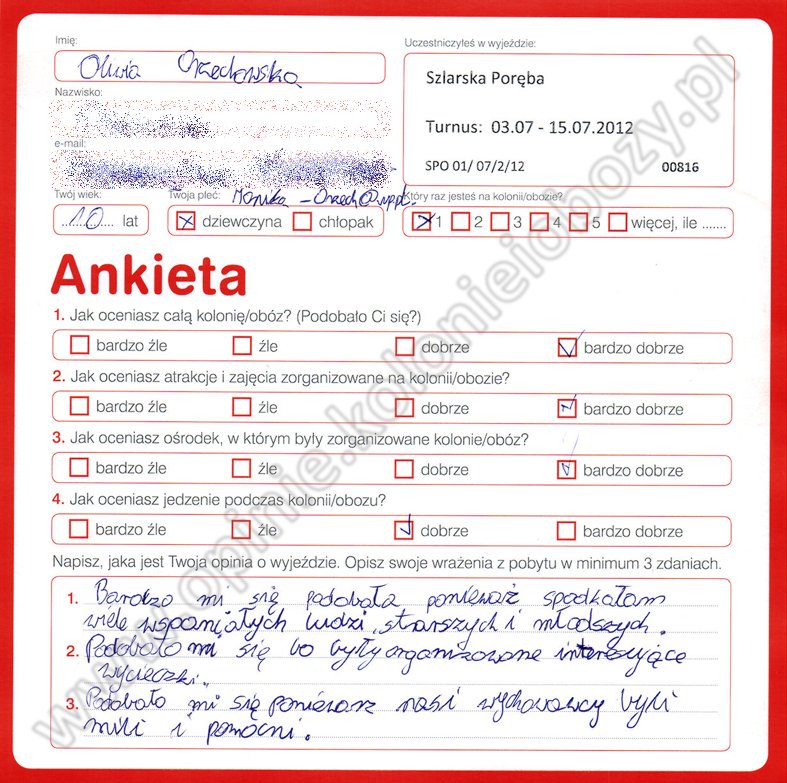 Imię:
Uczestniczyłeś w wyjeździe:
Oliwia Orzechowska
Szlarska Poręba
Nazwisko:
Turnus: 03.07 - 15.07.2012
e-mail:
SPO 01/ 07/2/12 00816
Twój wiek: Twoja płeć: Monika_Orzech@wp.pl Który raz jesteś na kolonii/obozie?
10 lat dziewczyna chłopak 1 2 3 4 5 więcej, ile .......
Ankieta
1. Jak oceniasz całą kolonię/obóz? (Podobało Ci się?)
bardzo źle źle dobrze bardzo dobrze
2. Jak oceniasz atrakcje i zajęcia zorganizowane na kolonii/obozie?
bardzo źle źle dobrze bardzo dobrze
3. Jak oceniasz ośrodek, w którym były zorganizowane kolonie/obóz?
bardzo źle źle dobrze bardzo dobrze
4. Jak oceniasz jedzenie podczas kolonii/obozu?
bardzo źle źle dobrze bardzo dobrze
Napisz, jaka jest Twoja opinia o wyjeździe. Opisz swoje wrażenia z pobytu w minimum 3 zdaniach.
1. Bardzo mi się podobała, ponieważ spodkałam
wiele wspaniałych ludzi, starszych i młodszych.
2. Podobało mi się bo były organizowane interesujące
wycieczki.
3. Podobało mi się poniewarz nasi wychowawcy byli
mili i pomocni.
www.opinie.kolonieiobozy.pl